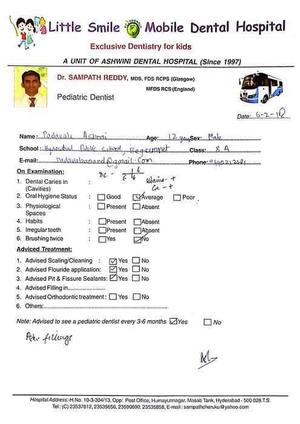 Little Smile Mobile Dental Hospital
Exclusive Dentistry for kids
A UNIT OF ASHWINI DENTAL HOSPITAL (Since 1997)
Dr. SAMPATH REDDY, MDS, FDS RCPS (Glasgow)
MFDS RCS (England)
Pediatric Dentist
Date: 6-2-18
Name: Age: 12 Sex: Male
School: Public School, Begumpet Class: 8 A
E-mail: @gmail.com Phone:
On Examination:
1. Dental Caries in
(Cavities)
2. Oral Hygiene Status : Good Average Poor
3. Physiological : Present Absent
Spaces
4. Habits : Present Absent
5. Irregular teeth : Present Absent
6. Brushing twice : Yes No
Adviced Treatment:
1. Advised Scaling/Cleaning : Yes No
2. Advised Flouride application: Yes No
3. Advised Pit & Fissure Sealants: Yes No
4. Advised Filling in
5. Advised Orthodontic treatment : Yes No
6. Others:
Note: Advised to see a pediatric dentist every 3-6 months Yes No
Adv fillings
Hospital Address:-H.No. 10-3-304/13, Opp: Post Office, Humayunnagar, Masab Tank, Hyderabad - 500 028.T.S.
Tel: (C) 23537612, 23535656, 23590690, 23535858, E-mail: sampathcheruku@yahoo.com